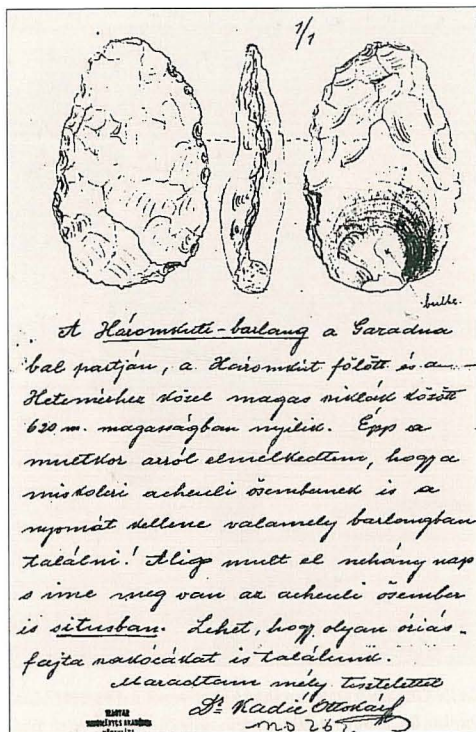 1/1
bulbe.
A Háromkúti-barlang a Garadna
bal partján, a Háromkút fölött és a
Hetemérhez közel magas sziklák között
630 m. magasságban nyílik. Épp a
multkor arról elmélkedtem, hogy a
miskolci acheuli ősembernek is a
nyomát kellene valamely barlangban
találni! Alig mult el nehány nap
s ime meg van az acheuli ősember
is situsban. Lehet, hogy olyan óriás-
fajta szakócákat is találunk.
Maradtam mély tisztelettel
Dr Kadić Ottokár
MAGYAR
TUDOMÁNYOS AKADÉMIA